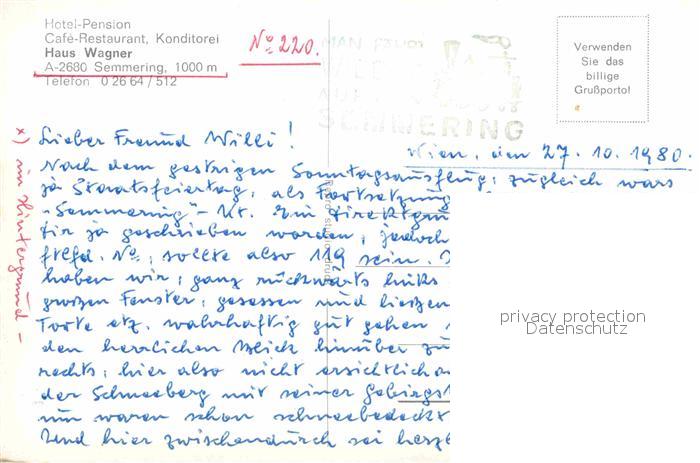 Hotel-Pension
Café-Restaurant, Konditorei
Haus Wagner
A-2680 Semmering, 1000 m
Telefon 0 26 64 / 512
No 220.
MAN FÄHRT
WIEDER
AUF DEN
SEMMERING
Verwenden
Sie das
billige
Grußporto!
Lieber Freund Willi!
Wien, den 27. 10. 1980.
Nach dem gestrigen Sonntagsausflug; zugleich wars
ja Staatsfeiertag, als Fortsetzung
"Semmering"- Kt. Ein Direktgru
Dir ja geschrieben worden, jedoch
ftlfd. No, sollte also 119 sein.
haben wir, ganz rückwärts links
großen Fenster, gesessen und ließen
Torte etz. wahrhaftig gut gehen
den herrlichen Blick hinüber zu
rechts, hier also nicht ersichtlich
der Schneeberg mit seiner Gebirgs
nun waren schon schneebedeckt
Und hier zwischendurch sei herzl
x) im Hintergrund -
privacy protection
Datenschutz